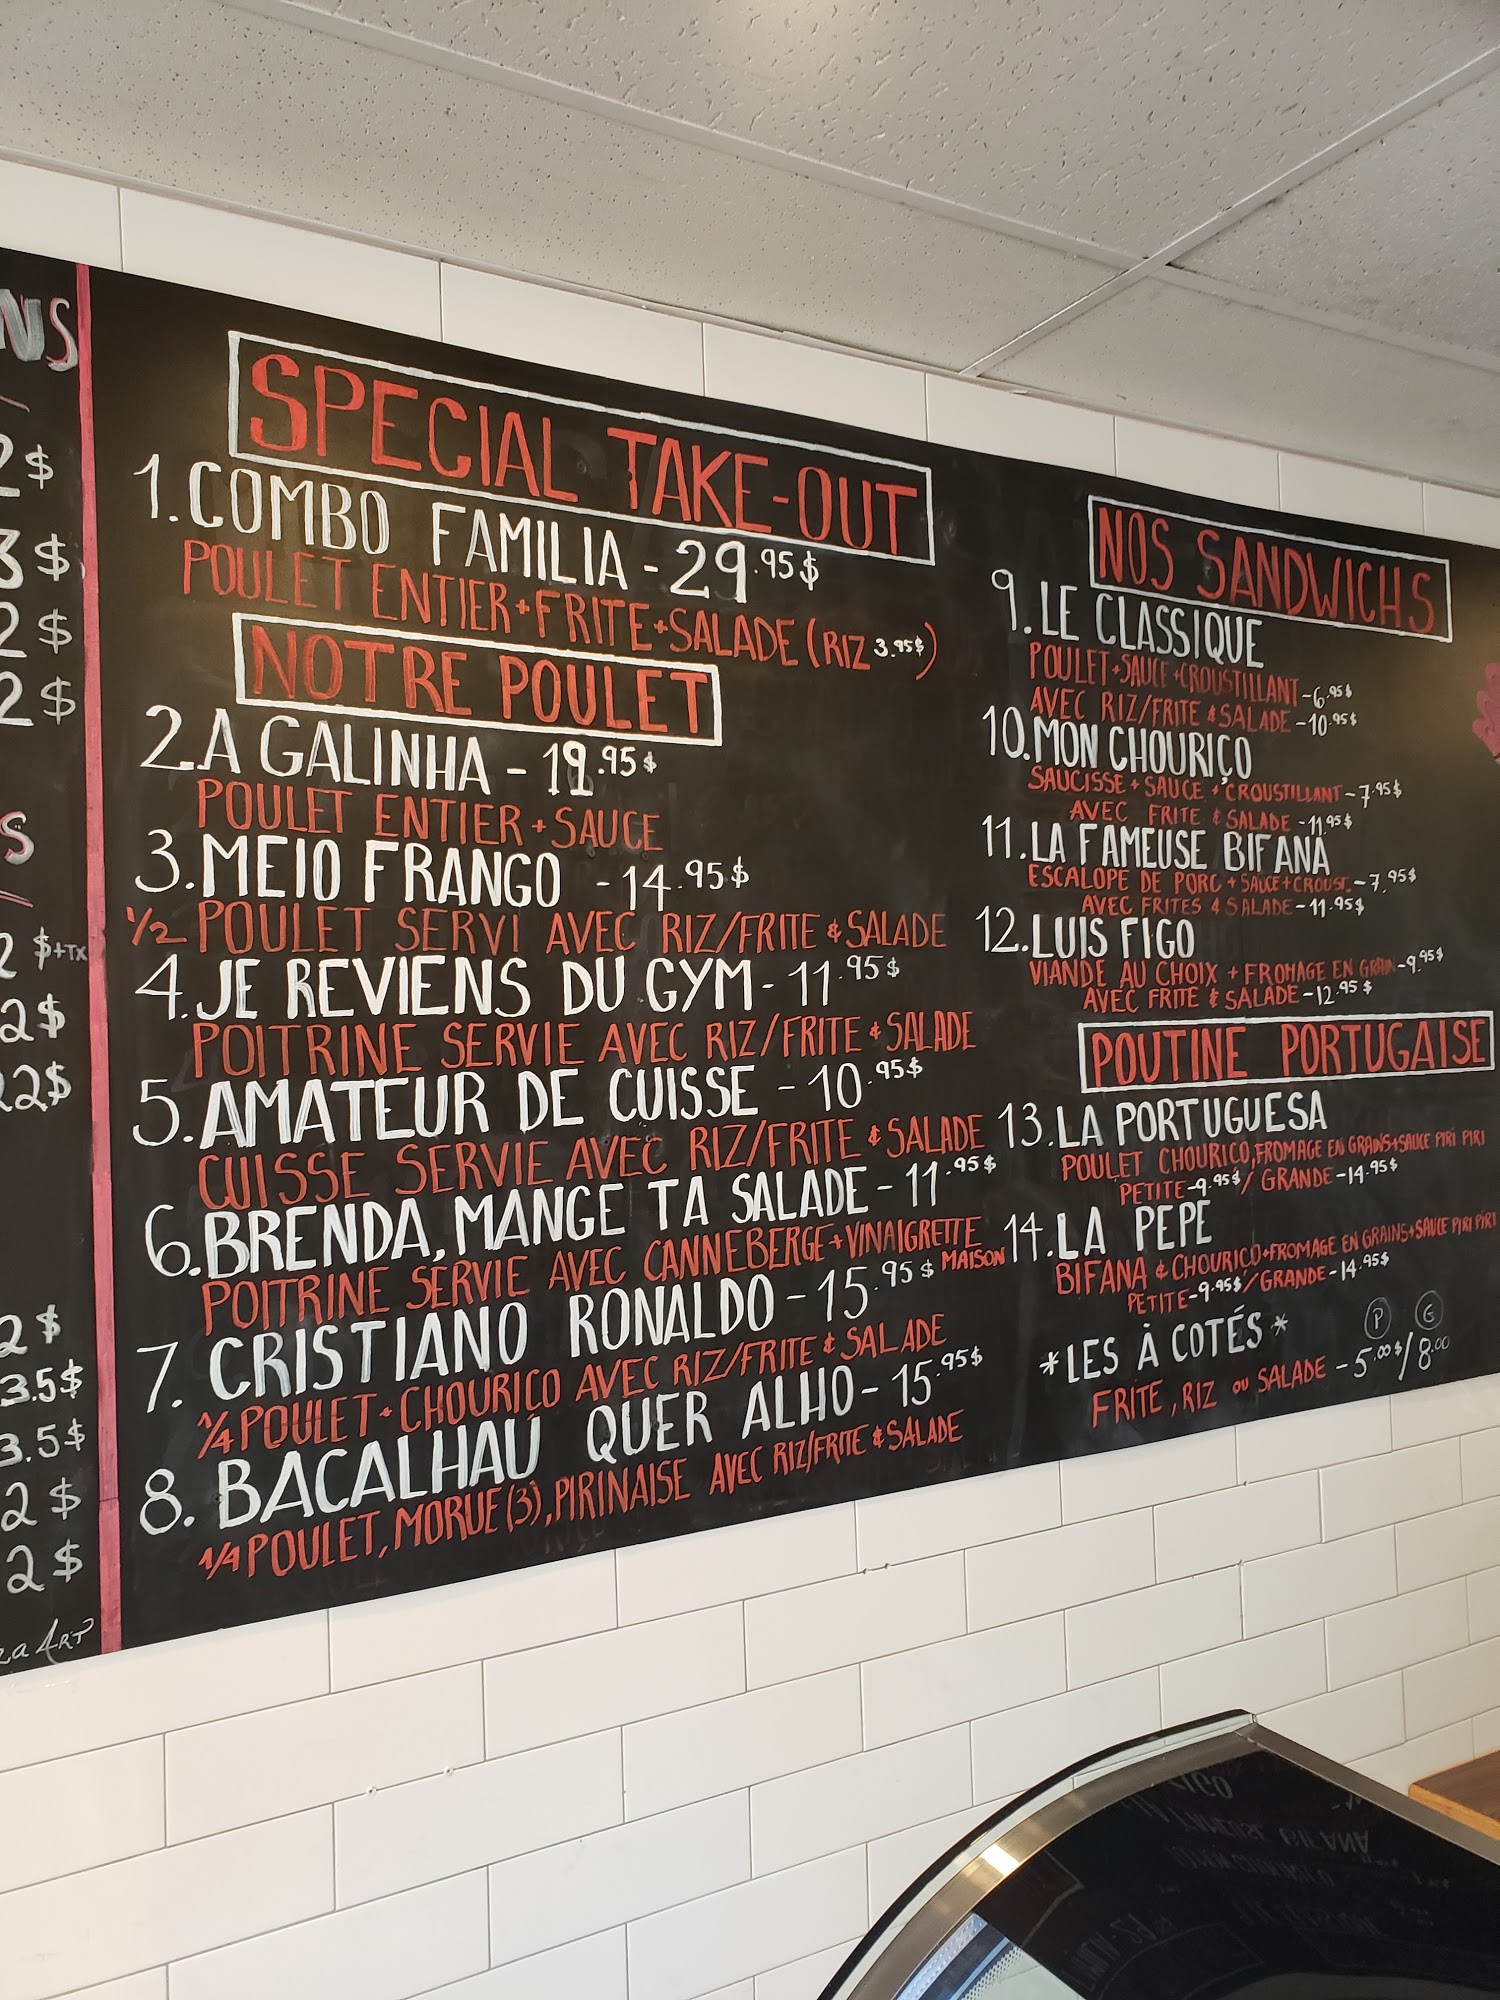 NS
2$
3$
2$
2$
S
2$+TX
2$
22$
2$
3.5$
3.5$
2$
2$
ART
SPECIAL TAKE-OUT
1. COMBO FAMILIA - 29.95$
POULET ENTIER+FRITE+SALADE (RIZ 3.95$)
NOTRE POULET
2. A GALINHA - 19.95$
POULET ENTIER + SAUCE
3. MEIO FRANGO - 14.95$
1/2 POULET SERVI AVEC RIZ/FRITE & SALADE
4. JE REVIENS DU GYM - 11.95$
POITRINE SERVIE AVEC RIZ/FRITE & SALADE
5. AMATEUR DE CUISSE - 10.95$
CUISSE SERVIE AVEC RIZ/FRITE & SALADE
6. BRENDA, MANGE TA SALADE - 11.95$
POITRINE SERVIE AVEC CANNEBERGE+VINAIGRETTE MAISON
7. CRISTIANO RONALDO - 15.95$
1/4 POULET+CHOURIÇO AVEC RIZ/FRITE & SALADE
8. BACALHAU QUER ALHO - 15.95$
1/4 POULET, MORUE (3), PIRINAISE AVEC RIZ/FRITE & SALADE
NOS SANDWICHS
9. LE CLASSIQUE
POULET+SAUCE+CROUSTILLANT - 6.95$
AVEC RIZ/FRITE & SALADE - 10.95$
10. MON CHOURIÇO
SAUCISSE + SAUCE + CROUSTILLANT - 7.95$
AVEC FRITE & SALADE - 11.95$
11. LA FAMEUSE BIFANA
ESCALOPE DE PORC + SAUCE + CROUST. - 7.95$
AVEC FRITES & SALADE - 11.95$
12. LUIS FIGO
VIANDE AU CHOIX + FROMAGE EN GRAIN - 9.95$
AVEC FRITE & SALADE - 12.95$
POUTINE PORTUGAISE
13. LA PORTUGUESA
POULET CHOURICO, FROMAGE EN GRAINS+SAUCE PIRI PIRI
PETITE - 9.95$ / GRANDE - 14.95$
14. LA PEPE
BIFANA & CHOURICO+FROMAGE EN GRAINS+SAUCE PIRI PIRI
PETITE - 9.95$ / GRANDE - 14.95$
*LES À COTÉS* P G
FRITE, RIZ OU SALADE - 5.00$/8.00